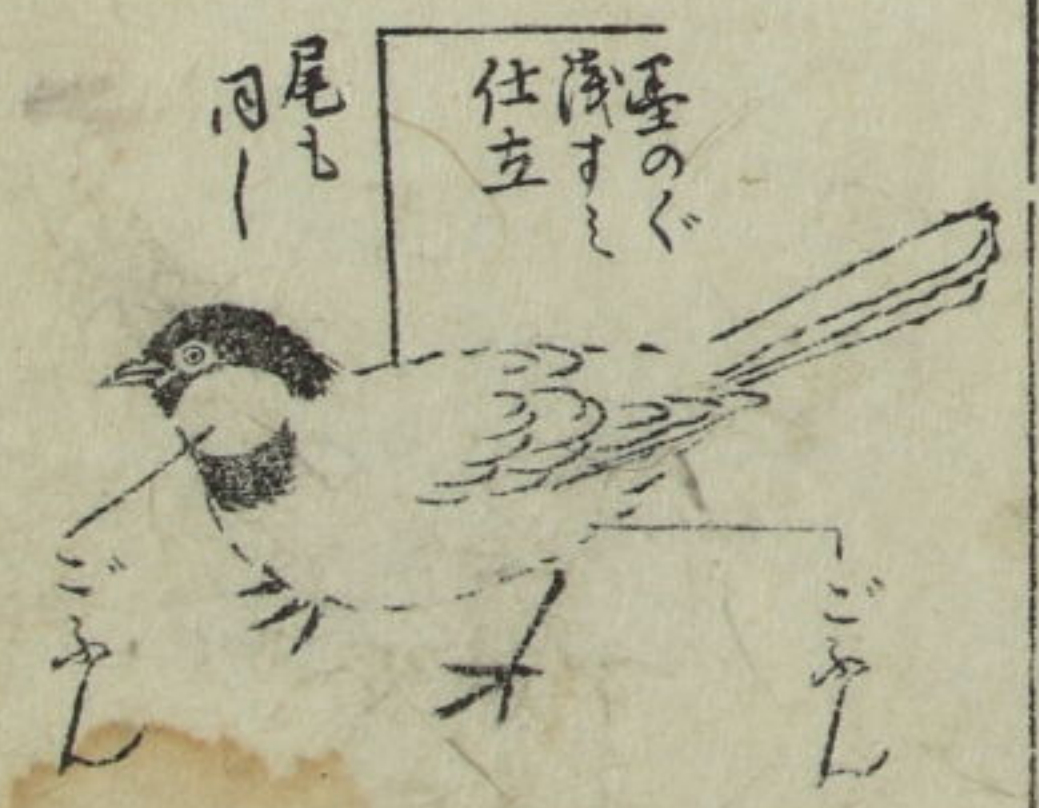 墨のぐ
浅すミ
仕立
尾も
同し
ごふん
ごふん